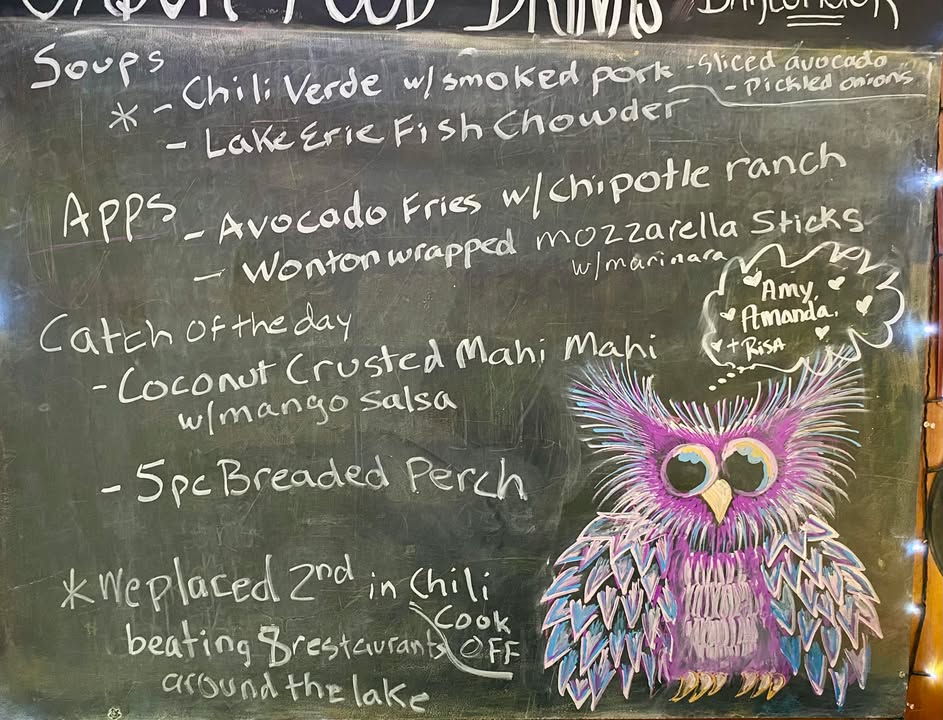 FOOD DRINKS
Soups
* - Chili Verde w/smoked pork - Sliced avocado
- Pickled onions
- Lake Erie Fish Chowder
Apps - Avocado Fries w/chipotle ranch
- Wonton wrapped mozzarella Sticks
w/marinara
Amy,
Amanda,
+ RISA
Catch of the day
- Coconut Crusted Mahi Mahi
w/mango salsa
- 5pc Breaded Perch
* We placed 2nd in Chili
Cook
OFF
beating 8 restaurants
around the lake